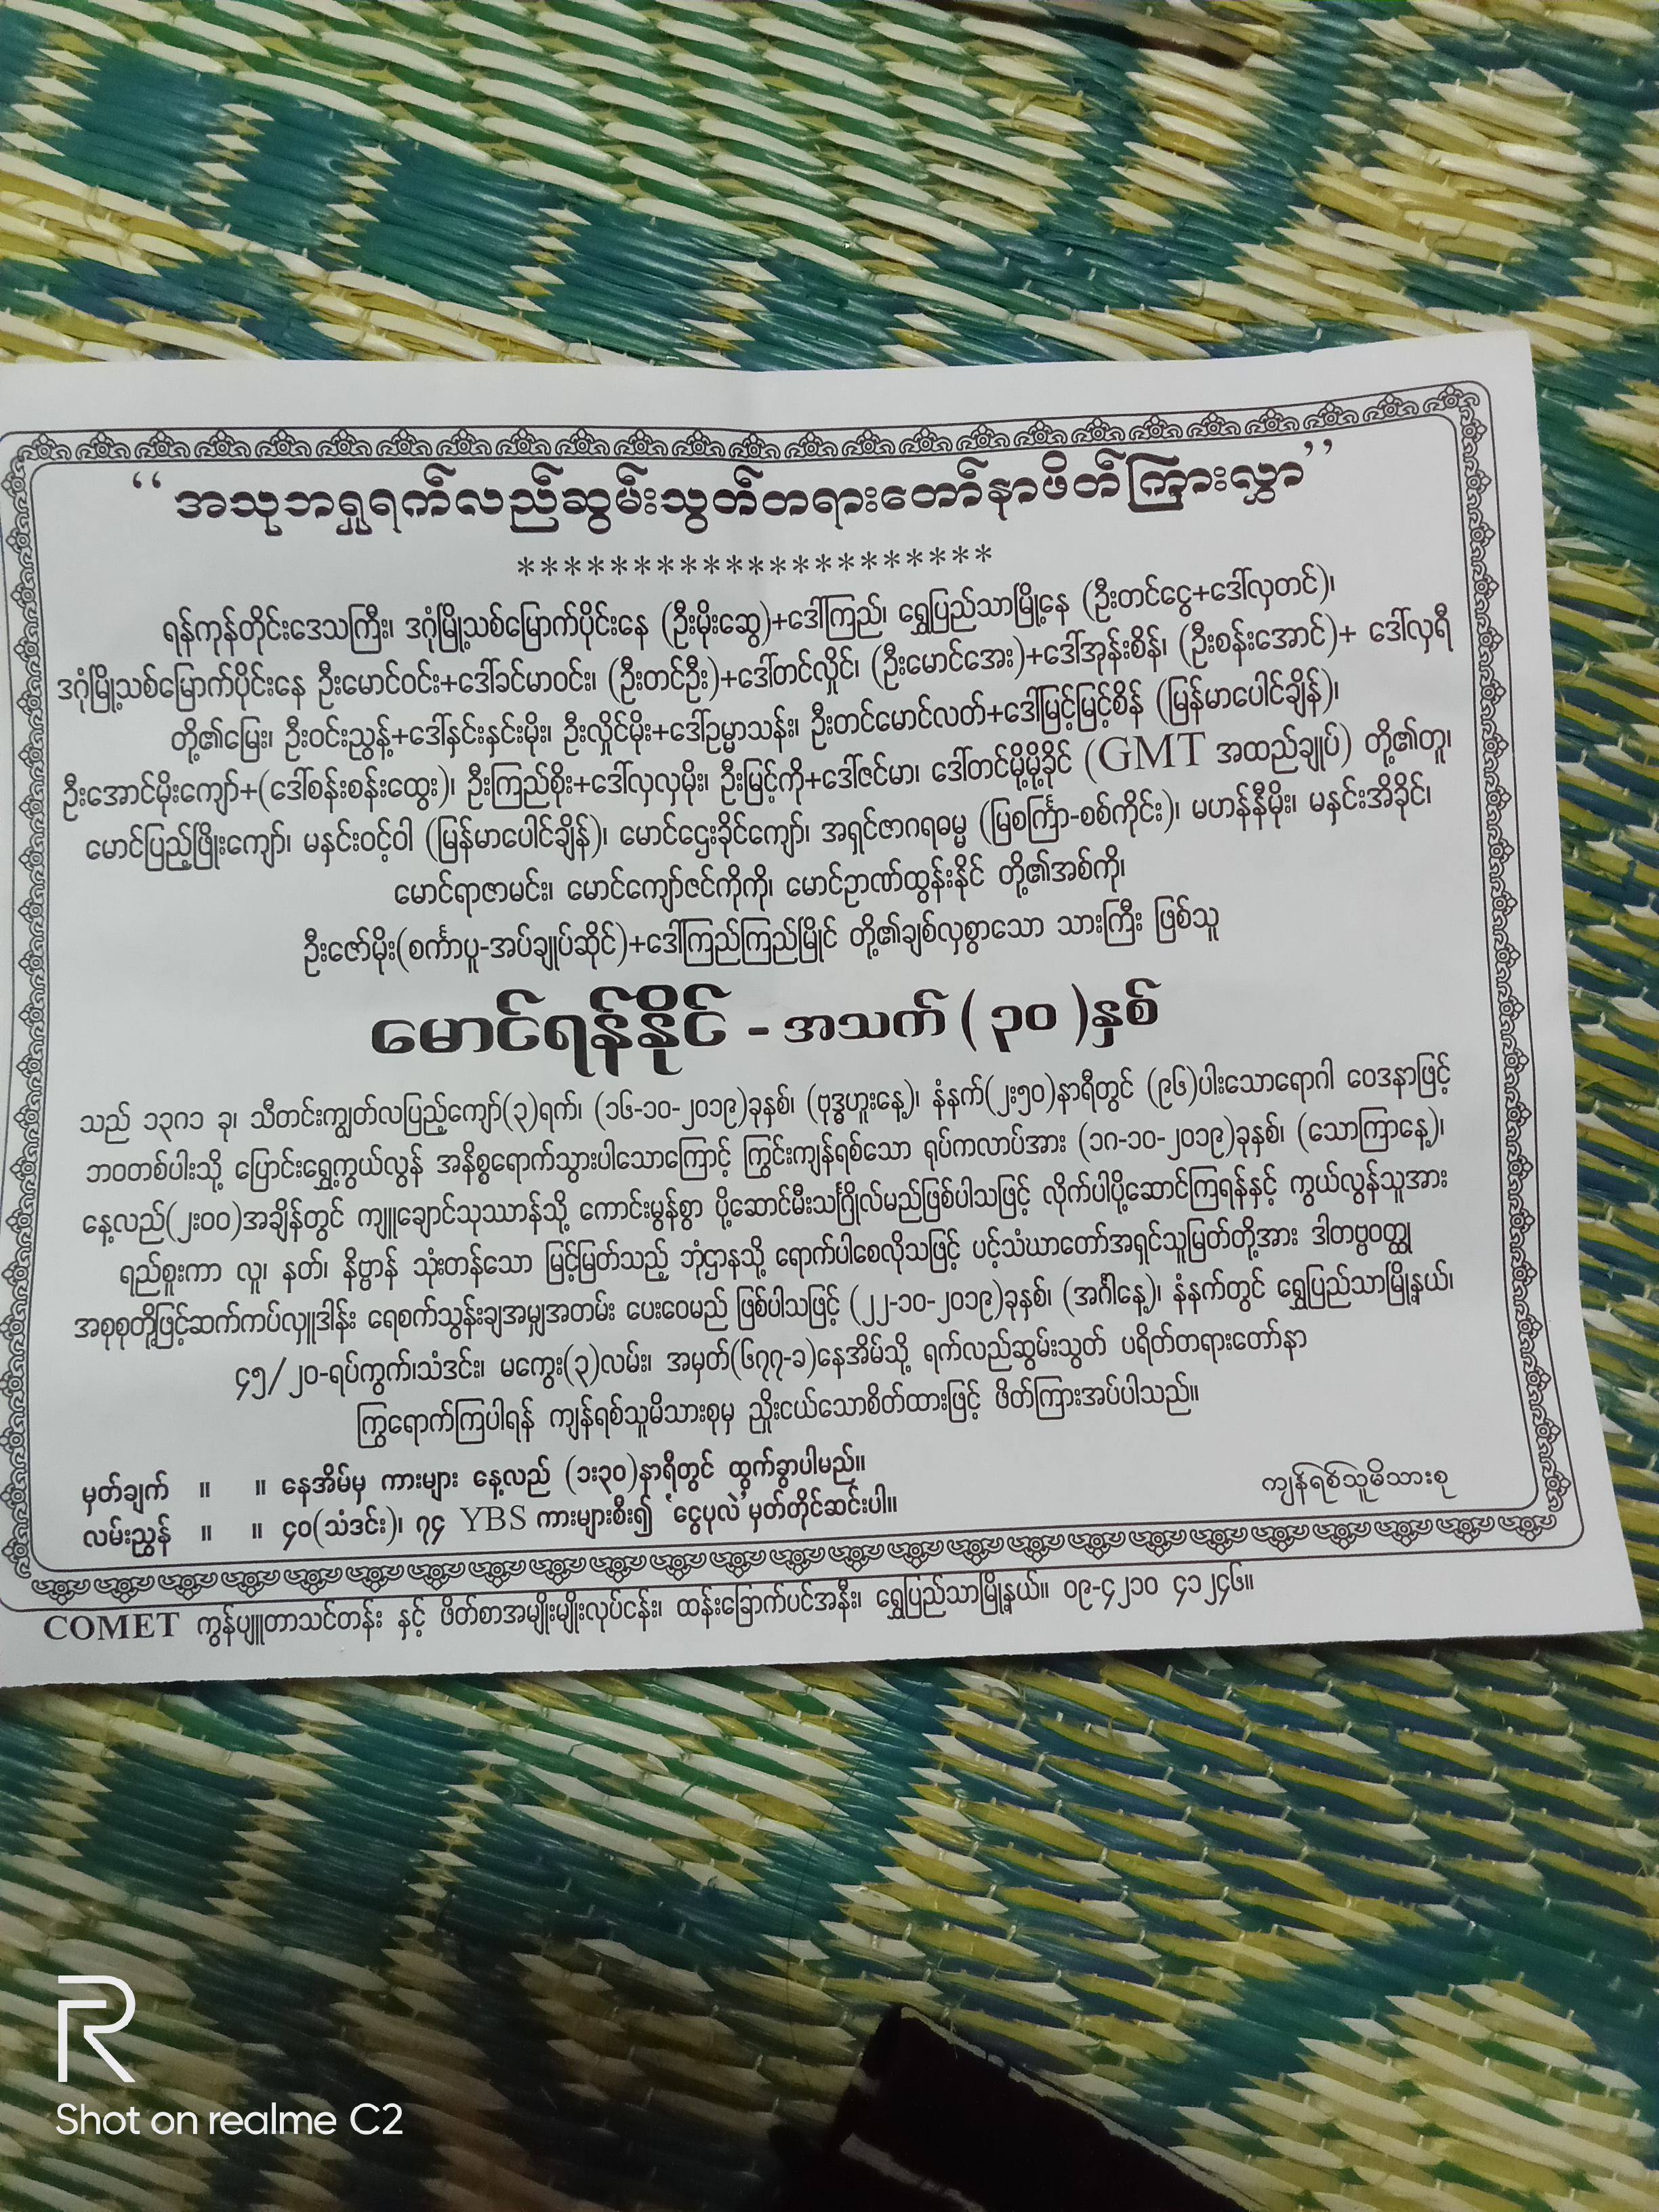 “အသုဘရှုရက်လည်ဆွမ်းသွတ်တရားတော်နာဖိတ်ကြားလွှာ”
*********************
ရန်ကုန်တိုင်းဒေသကြီး၊ ဒဂုံမြို့သစ်မြောက်ပိုင်းနေ (ဦးမိုးဆွေ)+ဒေါ်ကြည်၊ ရွှေပြည်သာမြို့နေ (ဦးတင်ငွေ+ဒေါ်လှတင်)၊
ဒဂုံမြို့သစ်မြောက်ပိုင်းနေ ဦးမောင်ဝင်း+ဒေါ်ခင်မာဝင်း၊ (ဦးတင်ဦး)+ဒေါ်တင်လှိုင်၊ (ဦးမောင်အေး)+ဒေါ်အုန်းစိန်၊ (ဦးစန်းအောင်)+ ဒေါ်လှရီ
တို့၏မြေး၊ ဦးဝင်းညွန့်+ဒေါ်နှင်းနှင်းမိုး၊ ဦးလှိုင်မိုး+ဒေါ်ဥမ္မာသန်း၊ ဦးတင်မောင်လတ်+ဒေါ်မြင့်မြင့်စိန် (မြန်မာပေါင်ချိန်)၊
ဦးအောင်မိုးကျော်+(ဒေါ်စန်းစန်းထွေး)၊ ဦးကြည်စိုး+ဒေါ်လှလှမိုး၊ ဦးမြင့်ကို+ဒေါ်ဇင်မာ၊ ဒေါ်တင်မို့မို့ခိုင် (GMT အထည်ချုပ်) တို့၏တူ၊
မောင်ပြည့်ဖြိုးကျော်၊ မနှင်းဝင့်ဝါ (မြန်မာပေါင်ချိန်)၊ မောင်ဌေးခိုင်ကျော်၊ အရှင်ဇာဂရဓမ္မ (မြစင်္ကြာ-စစ်ကိုင်း)၊ မဟန်နီမိုး၊ မနှင်းအိခိုင်၊
မောင်ရာဇာမင်း၊ မောင်ကျော်ဇင်ကိုကို၊ မောင်ဉာဏ်ထွန်းနိုင် တို့၏အစ်ကို၊
ဦးဇော်မိုး(စင်္ကာပူ-အပ်ချုပ်ဆိုင်)+ဒေါ်ကြည်ကြည်မြိုင် တို့၏ချစ်လှစွာသော သားကြီး ဖြစ်သူ
မောင်ရန်နိုင် - အသက် ( ၃၀ )နှစ်
သည် ၁၃၈၁ ခု၊ သီတင်းကျွတ်လပြည့်ကျော်(၃)ရက်၊ (၁၆-၁၀-၂၀၁၉)ခုနှစ်၊ (ဗုဒ္ဓဟူးနေ့)၊ နံနက်(၂း၅၀)နာရီတွင် (၉၆)ပါးသောရောဂါ ဝေဒနာဖြင့်
ဘဝတစ်ပါးသို့ ပြောင်းရွှေ့ကွယ်လွန် အနိစ္စရောက်သွားပါသောကြောင့် ကြွင်းကျန်ရစ်သော ရုပ်ကလာပ်အား (၁၈-၁၀-၂၀၁၉)ခုနှစ်၊ (သောကြာနေ့)၊
နေ့လည်(၂း၀၀)အချိန်တွင် ကျူချောင်သုဿာန်သို့ ကောင်းမွန်စွာ ပို့ဆောင်မီးသင်္ဂြိုလ်မည်ဖြစ်ပါသဖြင့် လိုက်ပါပို့ဆောင်ကြရန်နှင့် ကွယ်လွန်သူအား
ရည်စူးကာ လူ၊ နတ်၊ နိဗ္ဗာန် သုံးတန်သော မြင့်မြတ်သည့် ဘုံဌာနသို့ ရောက်ပါစေလိုသဖြင့် ပင့်သံဃာတော်အရှင်သူမြတ်တို့အား ဒါတဗ္ဗဝတ္ထု
အစုစုတို့ဖြင့်ဆက်ကပ်လှူဒါန်း ရေစက်သွန်းချအမျှအတမ်း ပေးဝေမည် ဖြစ်ပါသဖြင့် (၂၂-၁၀-၂၀၁၉)ခုနှစ်၊ (အင်္ဂါနေ့)၊ နံနက်တွင် ရွှေပြည်သာမြို့နယ်၊
၄၅/၂၀-ရပ်ကွက်၊သံဒင်း၊ မကွေး(၃)လမ်း၊ အမှတ်(၆၇၇-ခ)နေအိမ်သို့ ရက်လည်ဆွမ်းသွတ် ပရိတ်တရားတော်နာ
ကြွရောက်ကြပါရန် ကျန်ရစ်သူမိသားစုမှ ညှိုးငယ်သောစိတ်ထားဖြင့် ဖိတ်ကြားအပ်ပါသည်။
မှတ်ချက် ။ ။ နေအိမ်မှ ကားများ နေ့လည် (၁း၃၀)နာရီတွင် ထွက်ခွာပါမည်။
ကျန်ရစ်သူမိသားစု
လမ်းညွှန် ။ ။ ၄၀(သံဒင်း)၊ ၇၄ YBS ကားများစီး၍ ‘ငွေပုလဲ’မှတ်တိုင်ဆင်းပါ။
COMET ကွန်ပျူတာသင်တန်း နှင့် ဖိတ်စာအမျိုးမျိုးလုပ်ငန်း၊ ထန်းခြောက်ပင်အနီး၊ ရွှေပြည်သာမြို့နယ်။ ၀၉-၄၂၁၀ ၄၁၂၄၆။
R
Shot on realme C2